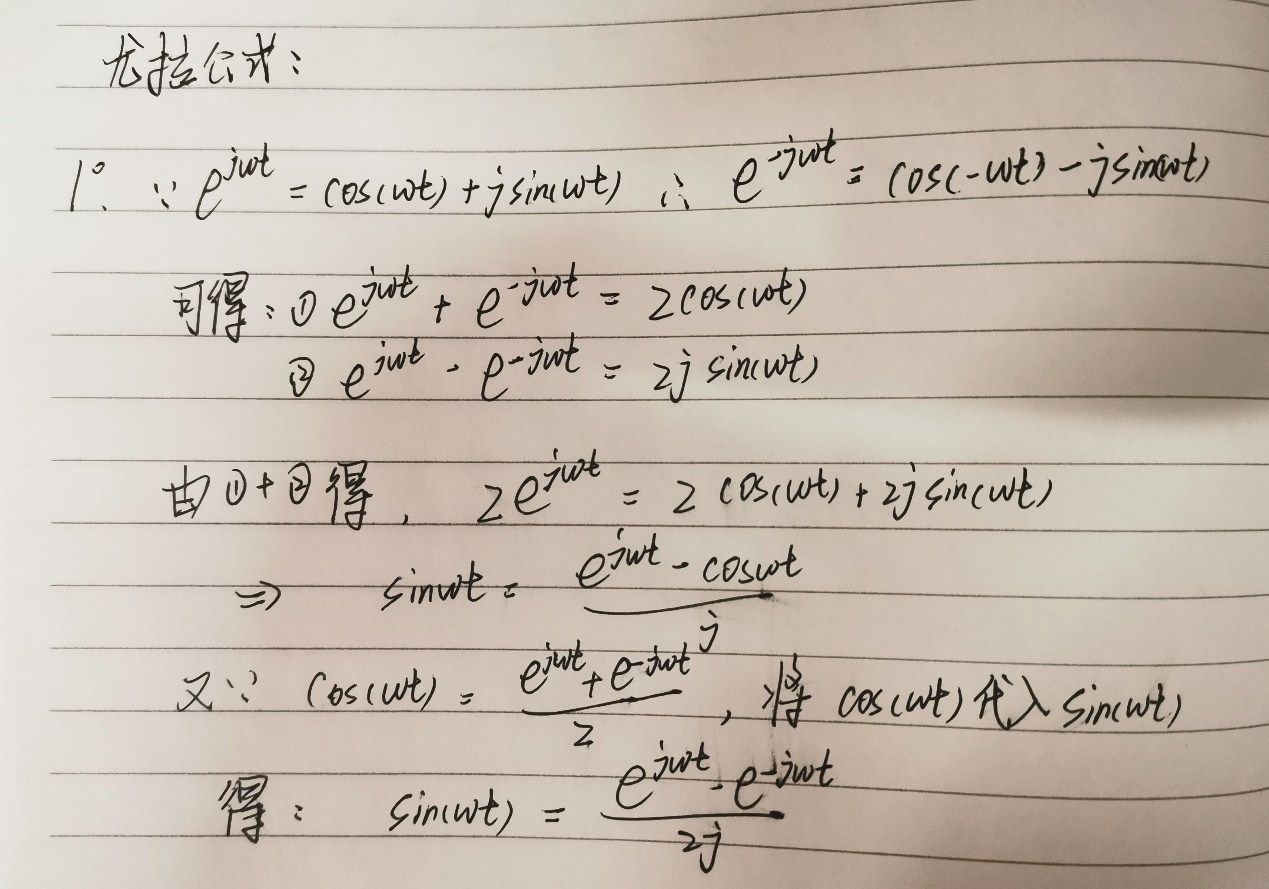 尤拉公式：
1°. ∵ e^{jωt} = cos(ωt) + jsin(ωt) ∴ e^{-jωt} = cos(-ωt) - jsin(ωt)
可得：① e^{jωt} + e^{-jωt} = 2cos(ωt)
② e^{jωt} - e^{-jωt} = 2j sin(ωt)
由①+②得， 2e^{jωt} = 2 cos(ωt) + 2j sin(ωt)
⇒ sinωt = \frac{e^{jωt} - cosωt}{j}
又∵ cos(ωt) = \frac{e^{jωt} + e^{-jωt}}{2}，将 cos(ωt) 代入 sin(ωt)
得： sin(ωt) = \frac{e^{jωt} - e^{-jωt}}{2j}